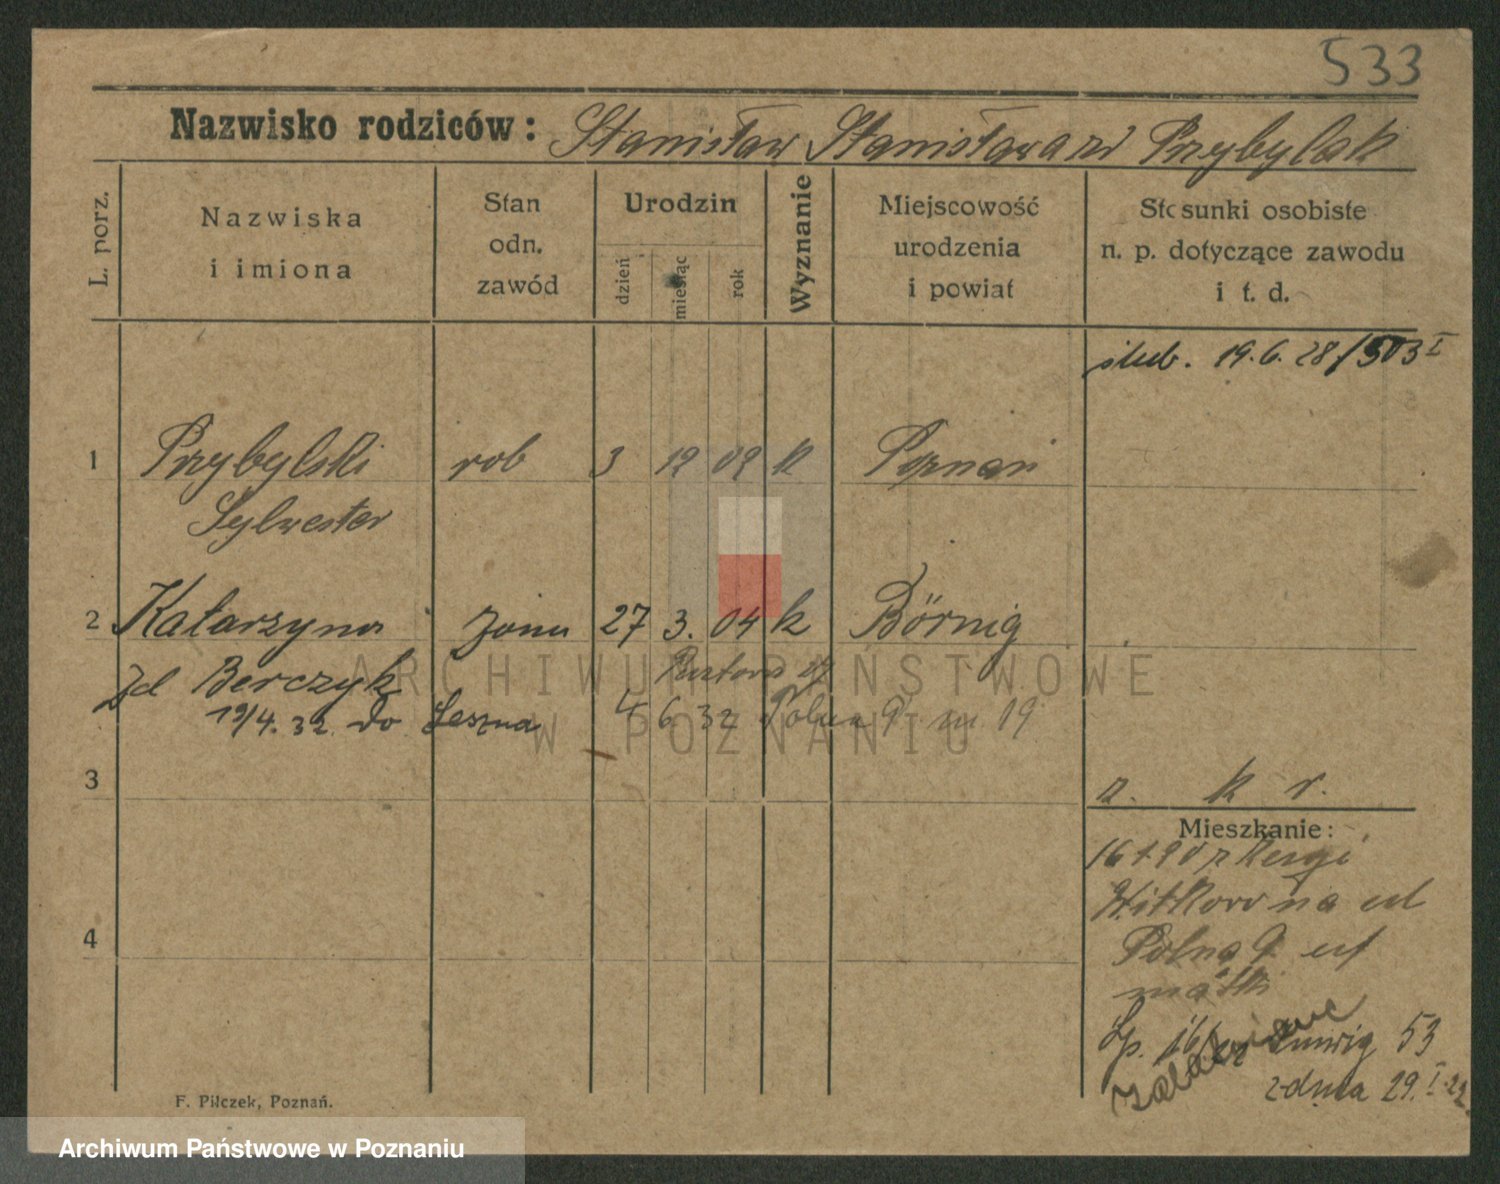 533
Nazwisko rodziców: Stanisław Stanisława zd Przybylak
L. porz.
Nazwiska
i imiona
Stan
odn.
zawód
Urodzin
dzień
miesiąc
rok
Wyznanie
Miejscowość
urodzenia
i powiat
Stosunki osobiste
n. p. dotyczące zawodu
i t. d.
ślub. 19.6.28/503 I
1 Przybylski rob 3 12 09 k Poznań
Sylwester
2 Katarzyna żona 27 3. 04 k Börnig
zd Berczyk
19/4.32. do Leszna 4 6 32 Polna 9 m 19
3
z. k r.
Mieszkanie:
Witkowo na ul
Polna 9 u
matki
Lp. 53
z dnia 29. I.
4
F. Pilczek, Poznań.
ARCHIWUM PAŃSTWOWE
W POZNANIU
Archiwum Państwowe w Poznaniu